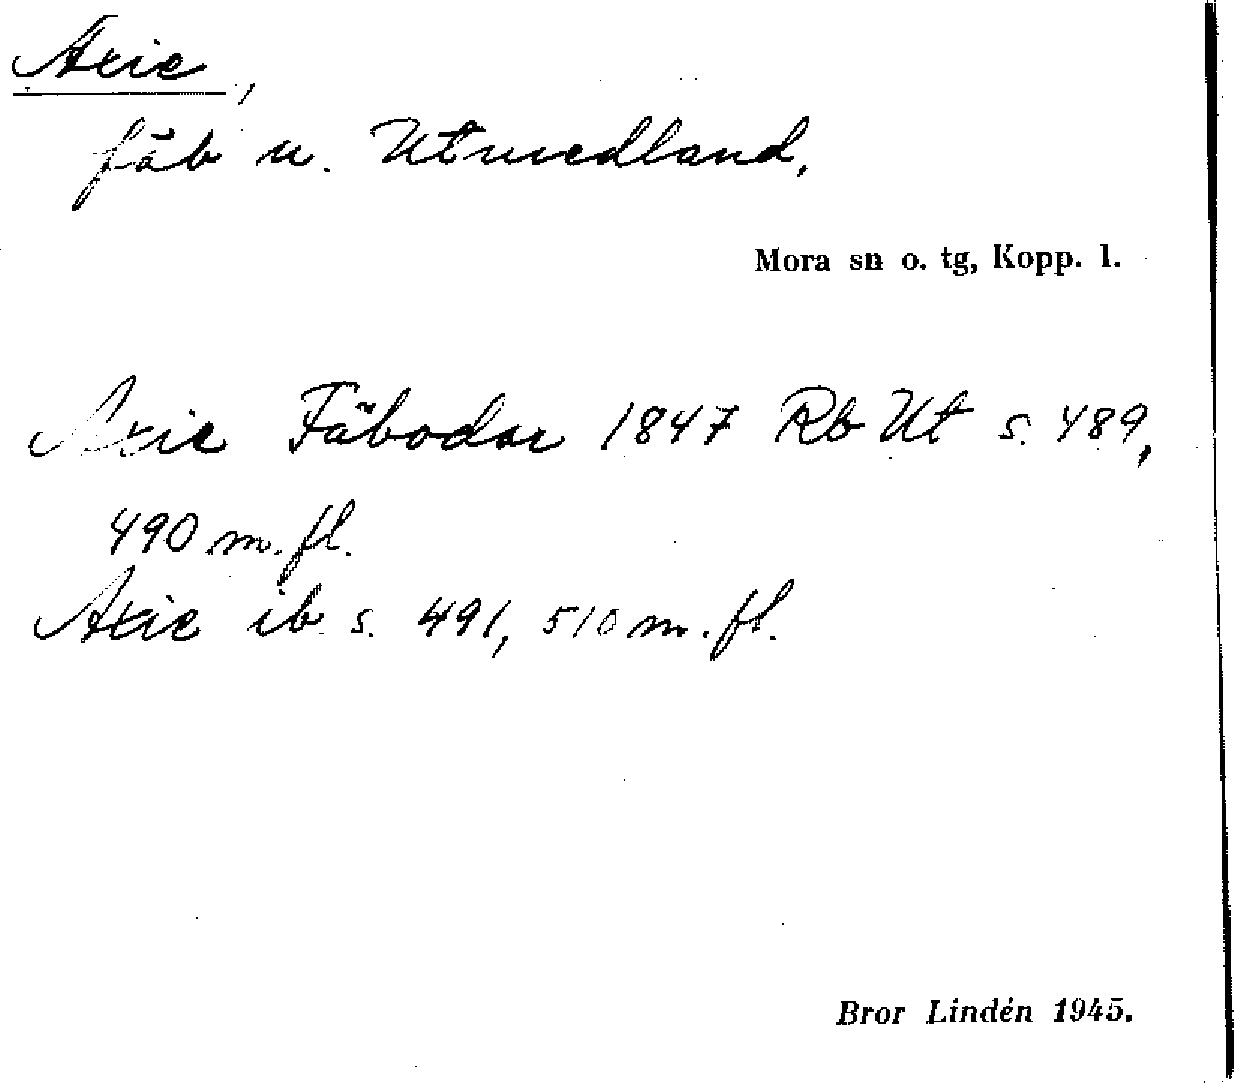 Axie,
fäb u. Utmedland,
Mora sn o. tg, Kopp. l.
Axie Fäbodar 1847 Rb Ut s. 489,
490 m. fl.
Axie ib. s. 491, 510 m. fl.
Bror Lindén 1945.